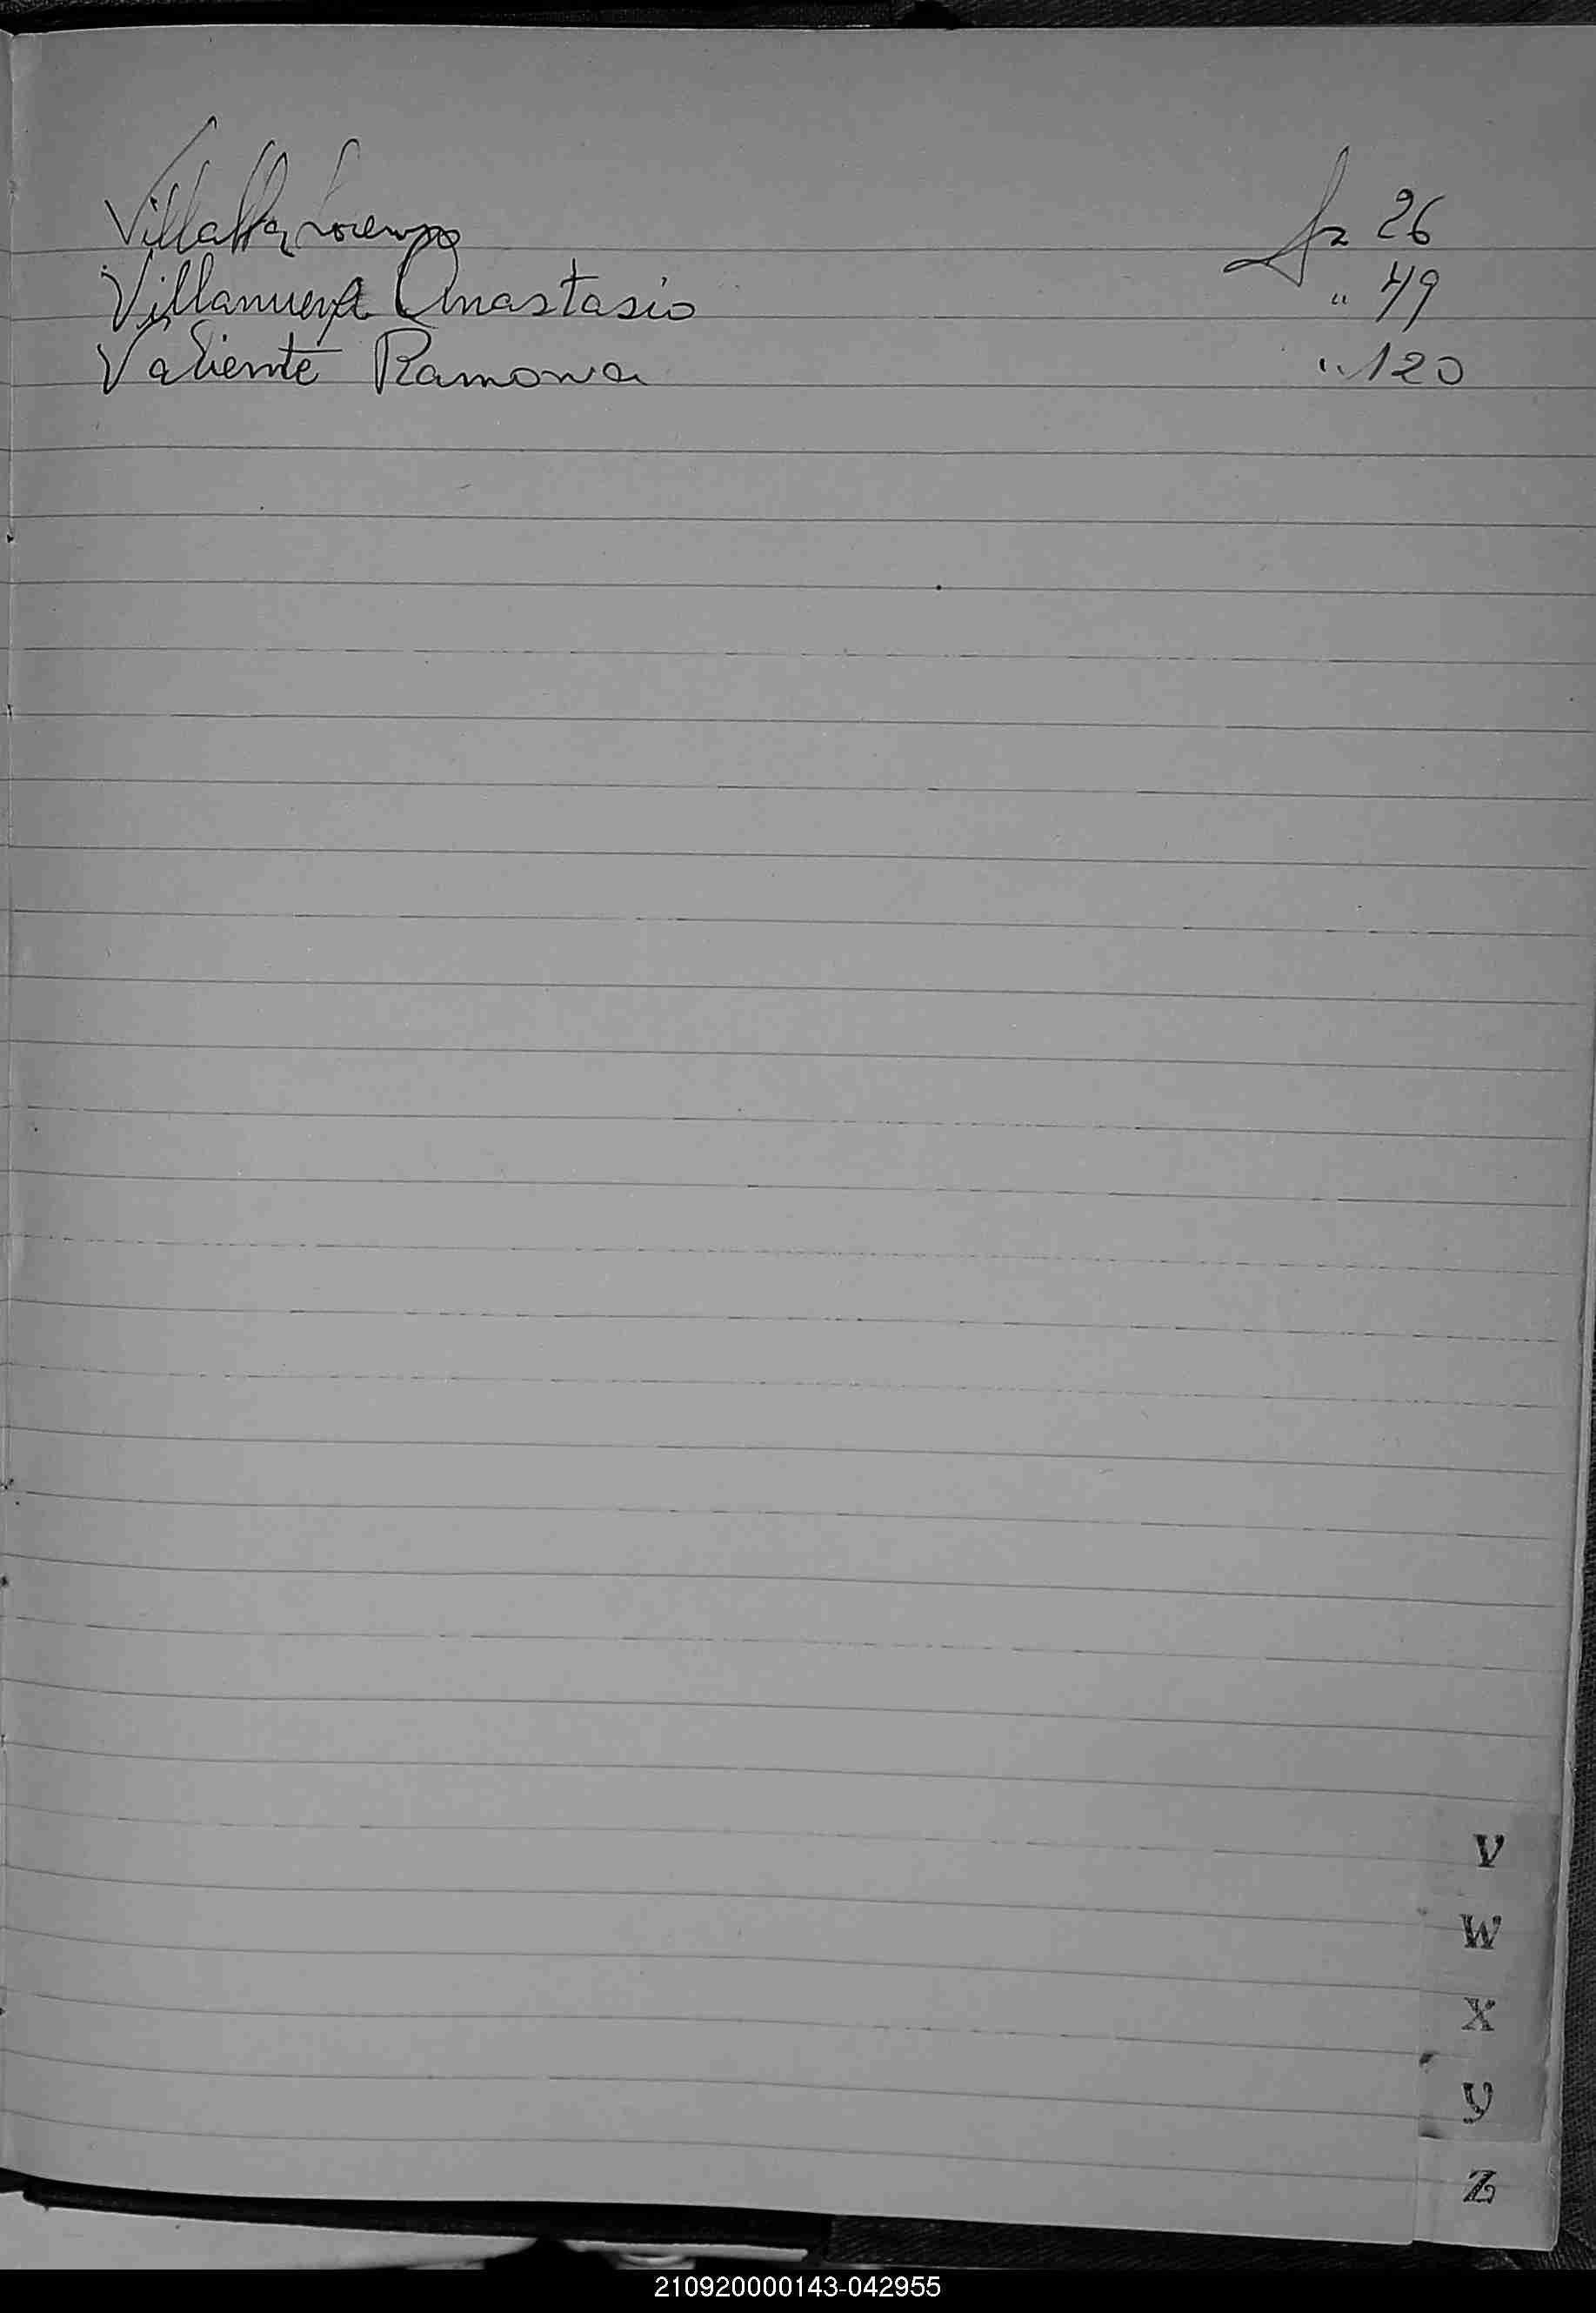 Villalba Lorenzo fs 26
Villanueva Anastasio " 49
Valiente Ramona " 120
V
W
X
Y
Z
210920000143-042955